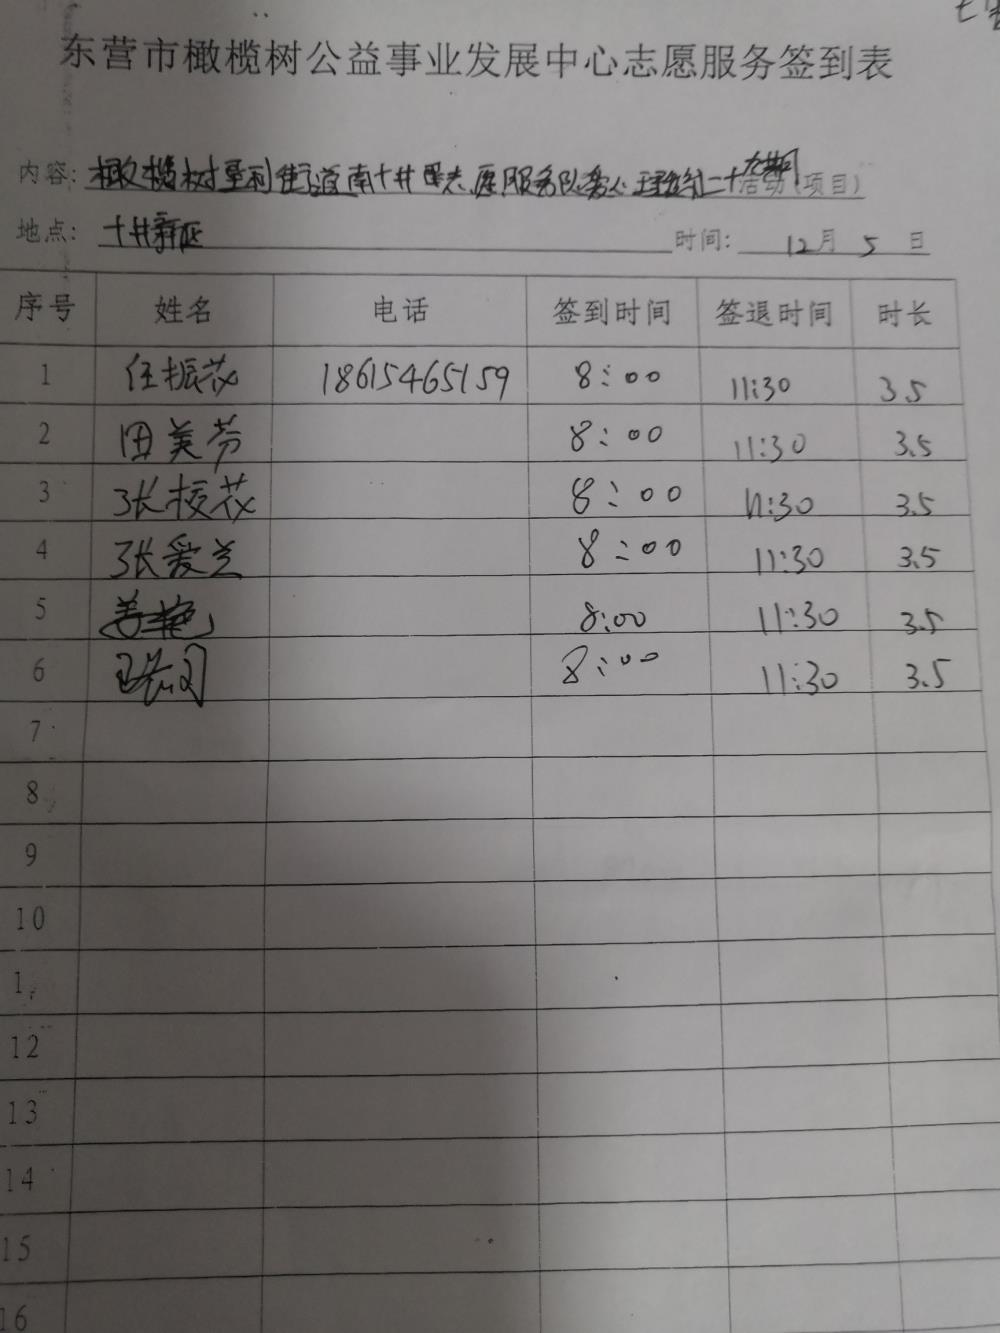 东营市橄榄树公益事业发展中心志愿服务签到表
内容: 橄榄树垦利街道南十井里志愿服务队爱心理发二十九期活动(项目)
地点: 十井新区 时间: 12月 5 日
序号 姓名 电话 签到时间 签退时间 时长
1 任振花 18615465159 8:00 11:30 3.5
2 田美芳 8:00 11:30 3.5
3 张校花 8:00 11:30 3.5
4 张爱兰 8:00 11:30 3.5
5 姜艳 8:00 11:30 3.5
6 8:00 11:30 3.5
7
8
9
10
1
12
13
14
15
16